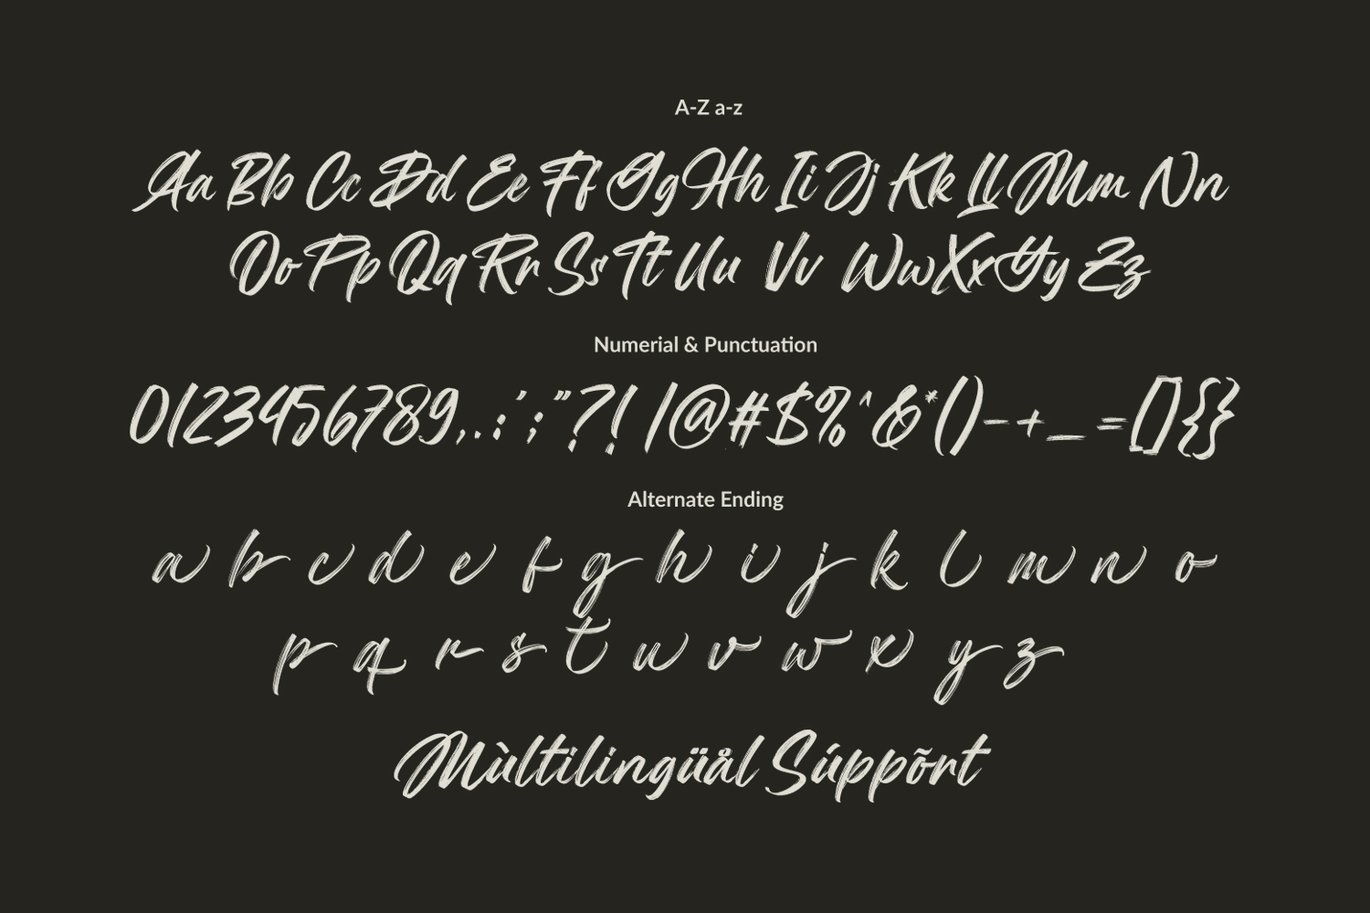 A-Z a-z
Aa Bb Cc Dd Ee Ff Gg Hh Ii Jj Kk Ll Mm Nn
Oo Pp Qq Rr Ss Tt Uu Vv Ww Xx Yy Zz
Numerial & Punctuation
0123456789,.:';"?!/@#$%^&*()-+_=[]{}
Alternate Ending
a b c d e f g h i j k l m n o
p q r s t u v w x y z
Mùltilingüål Súppõrt